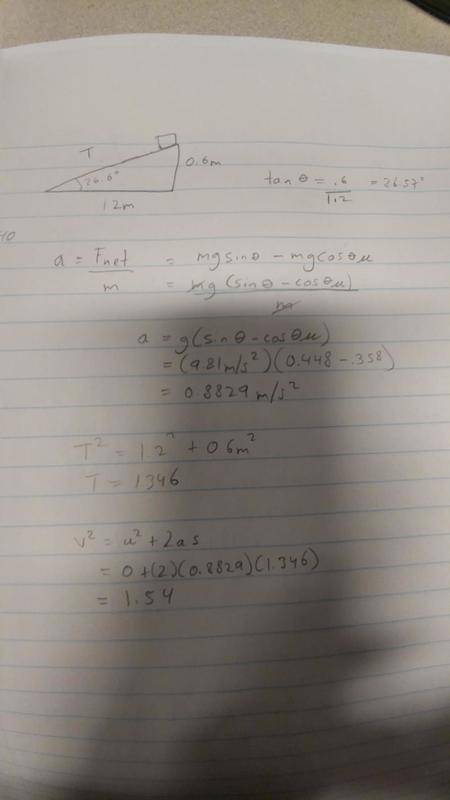 T
0.6m
26.6°
1.2m
tan θ = .6/1.2 = 26.57°
40
a = Fnet/m = mg sin θ - mg cos θ μ
= mg (sin θ - cos θ μ)/m
a = g(sin θ - cos θ μ)
= (9.81 m/s²)(0.448 - .358)
= 0.8829 m/s²
T² = 1 2² + 0 6m²
T = 1 346
v² = u² + 2as
= 0 + (2)(0.8829)(1.346)
= 1.54